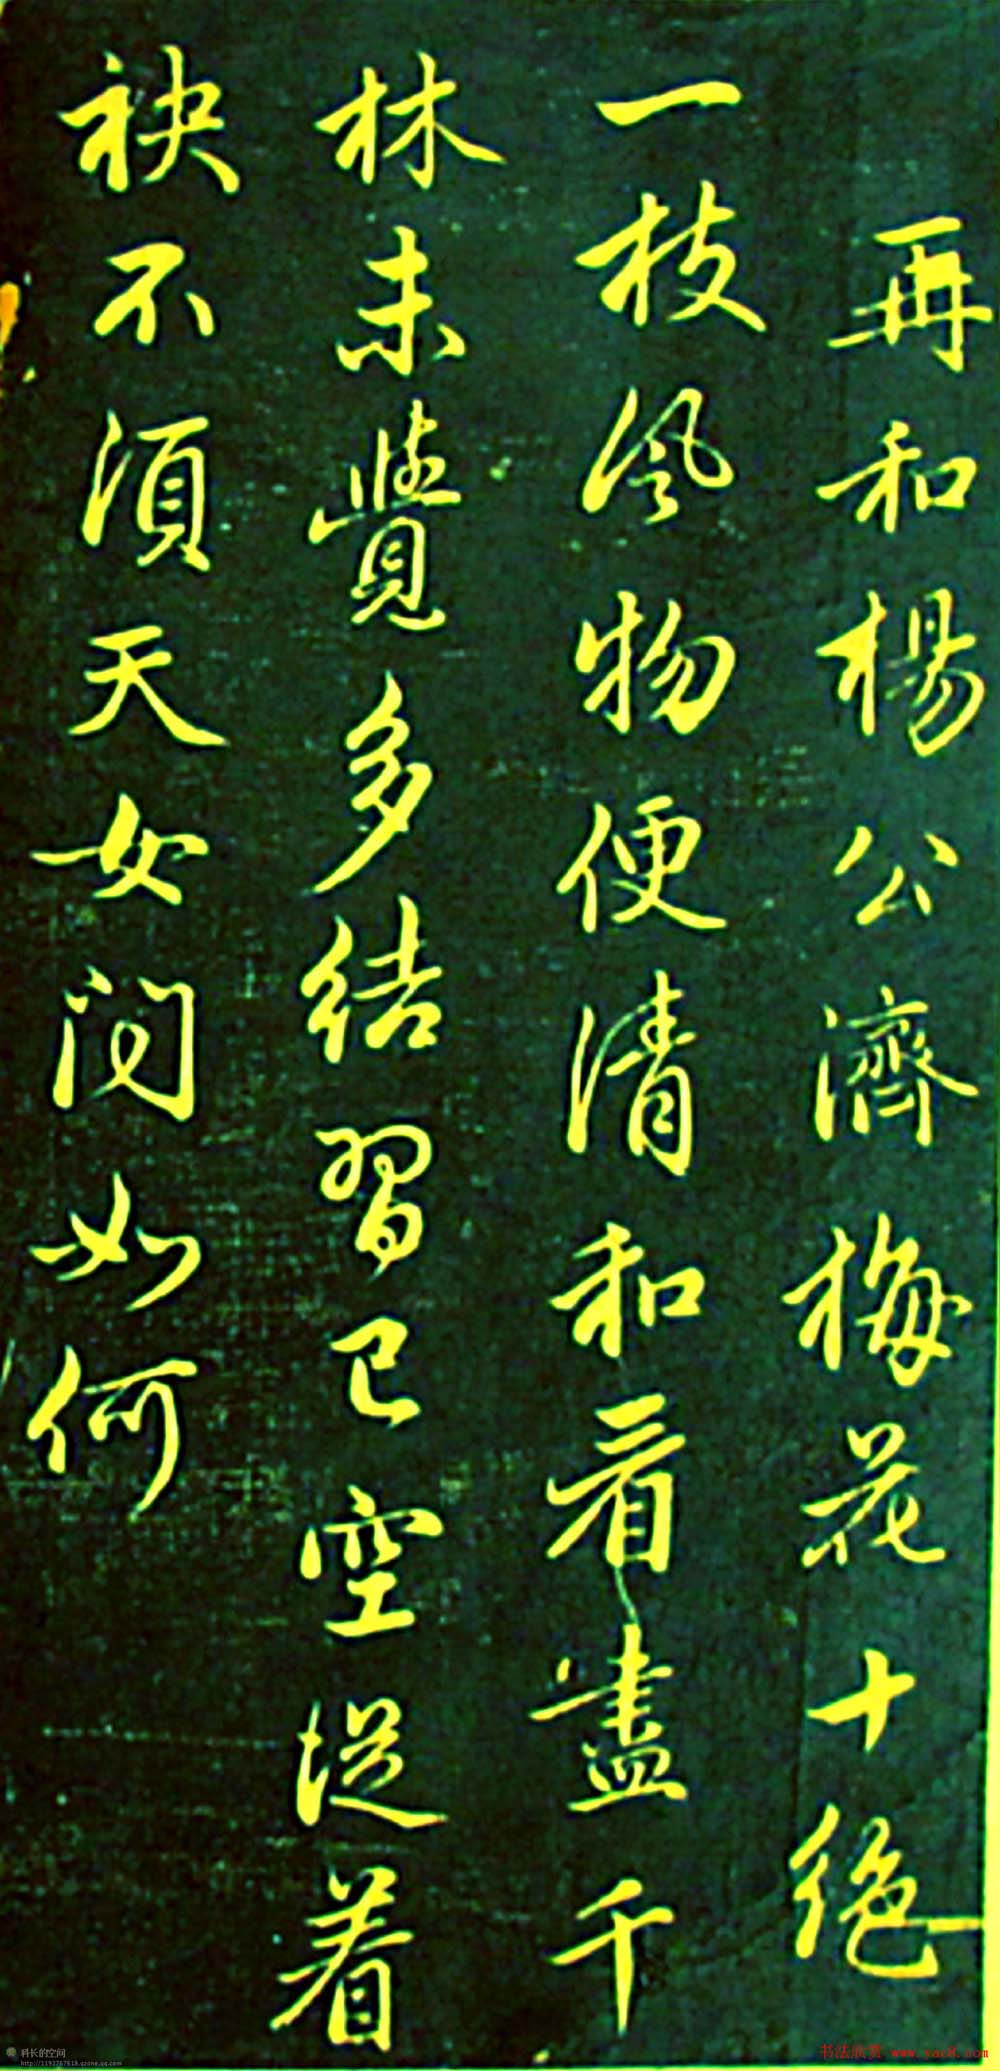 再和楊公濟梅花十絕
一枝風物便清和看盡千
林未覺多結習已空從着
袂不須天女問如何
科长的空间
http://1193767618.qzone.qq.com
书法欣赏 www.yac8.com